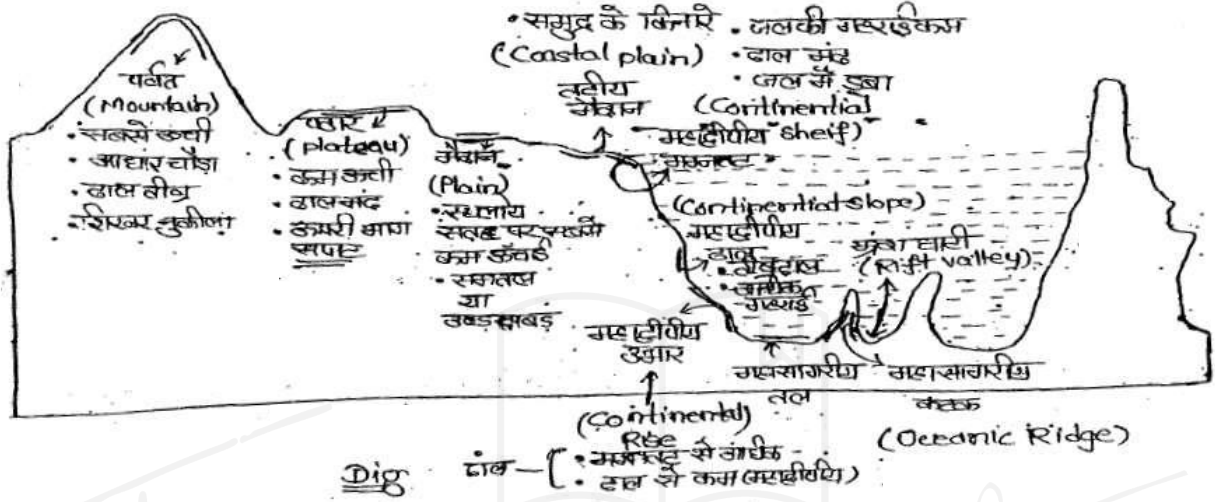 • समुद्र के किनारे
(Coastal plain)
तटीय
मैदान
• जलकी गहराई कम
• ढाल मंद
• जल में डूबा
(Continential
Sheif)
महाद्वीपीय
मग्नतट
पर्वत
(Mountain)
• सबसे ऊंची
• आधार चौड़ा
• ढाल तीव्र
• शिखर नुकीला
पठार
(plateau)
• कम ऊंची
• ढाल मंद
• ऊपरी भाग
सपाट
मैदान
(Plain)
• स्थलीय
सतह पर सबसे
कम ऊंचाई
• समतल
या
उबड़खाबड़
(Continential slope)
महाद्वीपीय
ढाल
• तीव्रढाल
• अधिक
गहराई
भ्रंश घाटी
(Rift valley)
महाद्वीपीय
उभार
(Continental)
Rise
महासागरीय
तल
महासागरीय
कटक
(Oceanic Ridge)
Dig
ढाल – [ • मग्नतट से अधिक
• ढाल से कम (महाद्वीपीय)